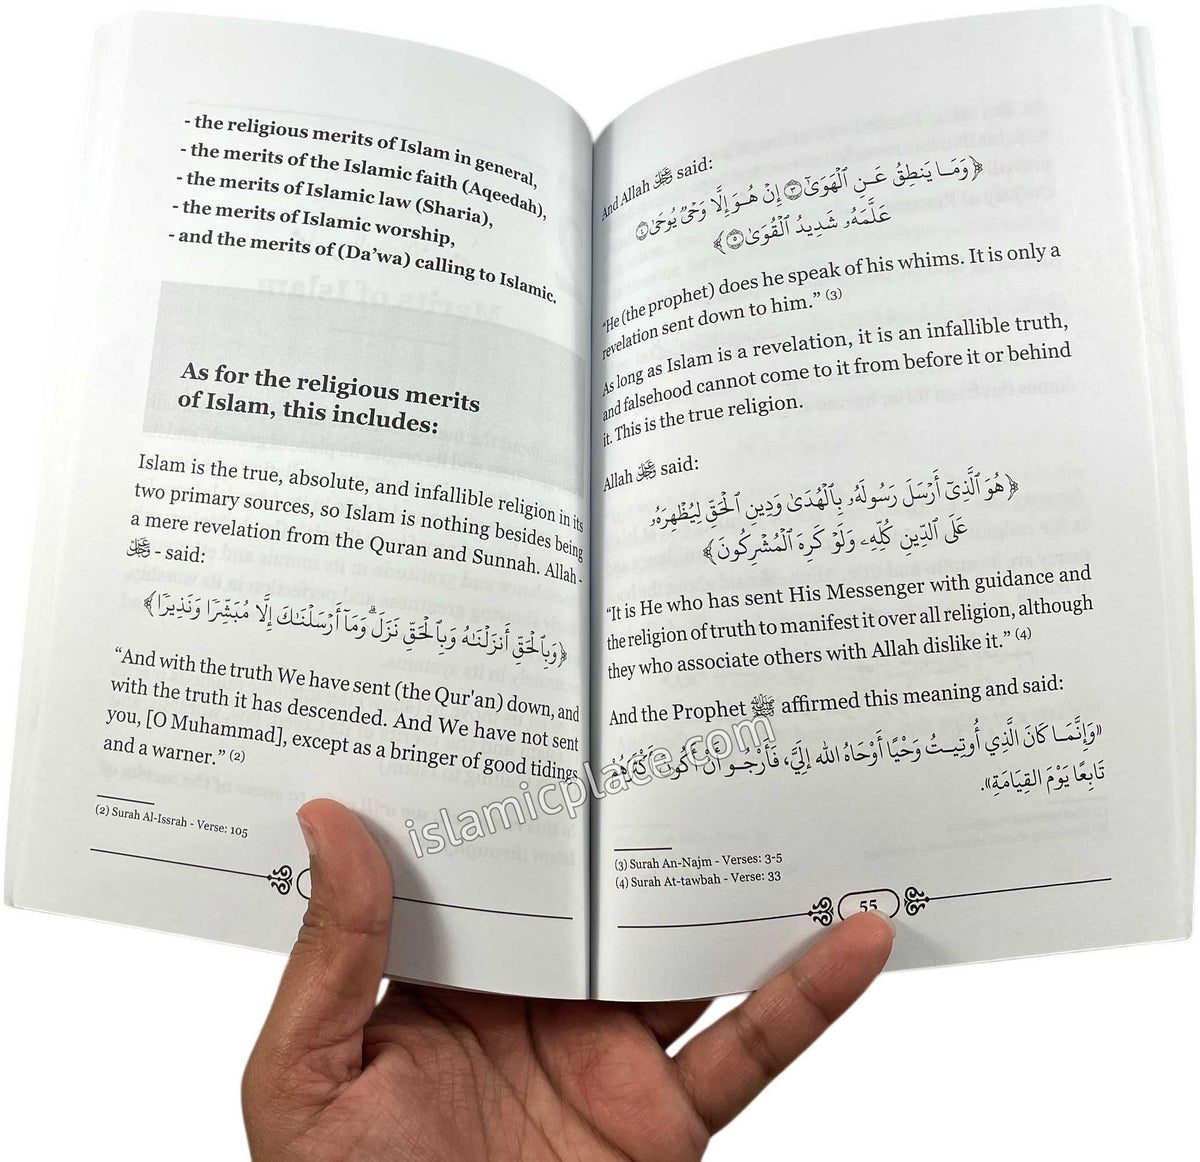 - the religious merits of Islam in general,
- the merits of the Islamic faith (Aqeedah),
- the merits of Islamic law (Sharia),
- the merits of Islamic worship,
- and the merits of (Da'wa) calling to Islamic.
As for the religious merits
of Islam, this includes:
Islam is the true, absolute, and infallible religion in its
two primary sources, so Islam is nothing besides being
a mere revelation from the Quran and Sunnah. Allah -
ﷻ - said:
﴿وَبِٱلْحَقِّ أَنزَلْنَٰهُ وَبِٱلْحَقِّ نَزَلَ ۗ وَمَآ أَرْسَلْنَٰكَ إِلَّا مُبَشِّرًا وَنَذِيرًا﴾
“And with the truth We have sent (the Qur'an) down, and
with the truth it has descended. And We have not sent
you, [O Muhammad], except as a bringer of good tidings
and a warner.” (2)
(2) Surah Al-Issrah - Verse: 105
And Allah ﷻ said:
﴿وَمَا يَنطِقُ عَنِ ٱلْهَوَىٰٓ ٣ إِنْ هُوَ إِلَّا وَحْىٌ يُوحَىٰ ٤
عَلَّمَهُۥ شَدِيدُ ٱلْقُوَىٰ ٥﴾
“He (the prophet) does he speak of his whims. It is only a
revelation sent down to him.” (3)
As long as Islam is a revelation, it is an infallible truth,
and falsehood cannot come to it from before it or behind
it. This is the true religion.
Allah ﷻ said:
﴿هُوَ ٱلَّذِىٓ أَرْسَلَ رَسُولَهُۥ بِٱلْهُدَىٰ وَدِينِ ٱلْحَقِّ لِيُظْهِرَهُۥ
عَلَى ٱلدِّينِ كُلِّهِۦ وَلَوْ كَرِهَ ٱلْمُشْرِكُونَ﴾
“It is He who has sent His Messenger with guidance and
the religion of truth to manifest it over all religion, although
they who associate others with Allah dislike it.” (4)
And the Prophet ﷺ affirmed this meaning and said:
«وَإِنَّمَا كَانَ الَّذِي أُوتِيتُ وَحْيًا أَوْحَاهُ الله إِلَيَّ، فَأَرْجُو أَنْ أَكُونَ أَكْثَرَهُمْ
تَابِعًا يَوْمَ الْقِيَامَةِ».
(3) Surah An-Najm - Verses: 3-5
(4) Surah At-tawbah - Verse: 33
55
islamicplace.com